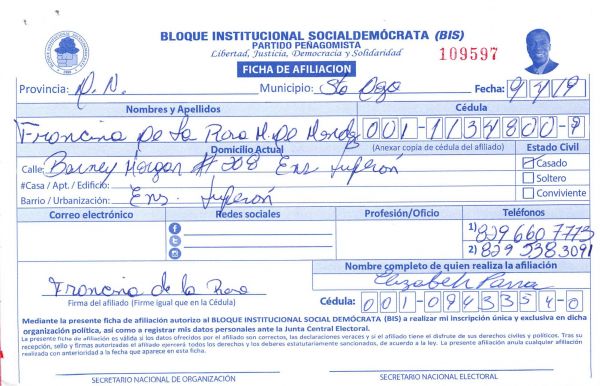 BLOQUE INSTITUCIONAL SOCIALDEMÓCRATA (BIS)
PARTIDO PEÑAGOMISTA
Libertad, Justicia, Democracia y Solidaridad
109597
FICHA DE AFILIACION
Provincia: D.N. Municipio: Sto Dgo Fecha: 9/7/19
Nombres y Apellidos Cédula
Francina De La Rosa M. De Mendez 001-1134800-9
Domicilio Actual (Anexar copia de cédula del afiliado) Estado Civil
Calle: Barney Morgan # 208 Ens Luperón Casado
#Casa / Apt. / Edificio: Soltero
Barrio / Urbanización: Ens. Luperón Conviviente
Correo electrónico Redes sociales Profesión/Oficio Teléfonos
1) 829 660 7773
2) 829 538 3091
Nombre completo de quien realiza la afiliación
Francina de la Rosa Elizabeth Parra
Firma del afiliado (Firme igual que en la Cédula) Cédula: 001-0943354-0
Mediante la presente ficha de afiliación autorizo al BLOQUE INSTITUCIONAL SOCIAL DEMÓCRATA (BIS) a realizar mi inscripción única y exclusiva en dicha
organización política, así como a registrar mis datos personales ante la Junta Central Electoral.
La presente ficha de afiliación es válida si los datos ofrecidos por el afiliado son correctos, las declaraciones veraces y si el afiliado tiene el disfrute de sus derechos civiles y políticos. Tras su
recepción, sello y firmas autorizadas el afiliado ejercerá todos los derechos y los deberes estatutariamente sancionados, de acuerdo a la ley. La presente afiliación anula cualquier afiliación
realizada con anterioridad a la fecha que aparece en esta ficha.
SECRETARIO NACIONAL DE ORGANIZACIÓN SECRETARIO NACIONAL ELECTORAL